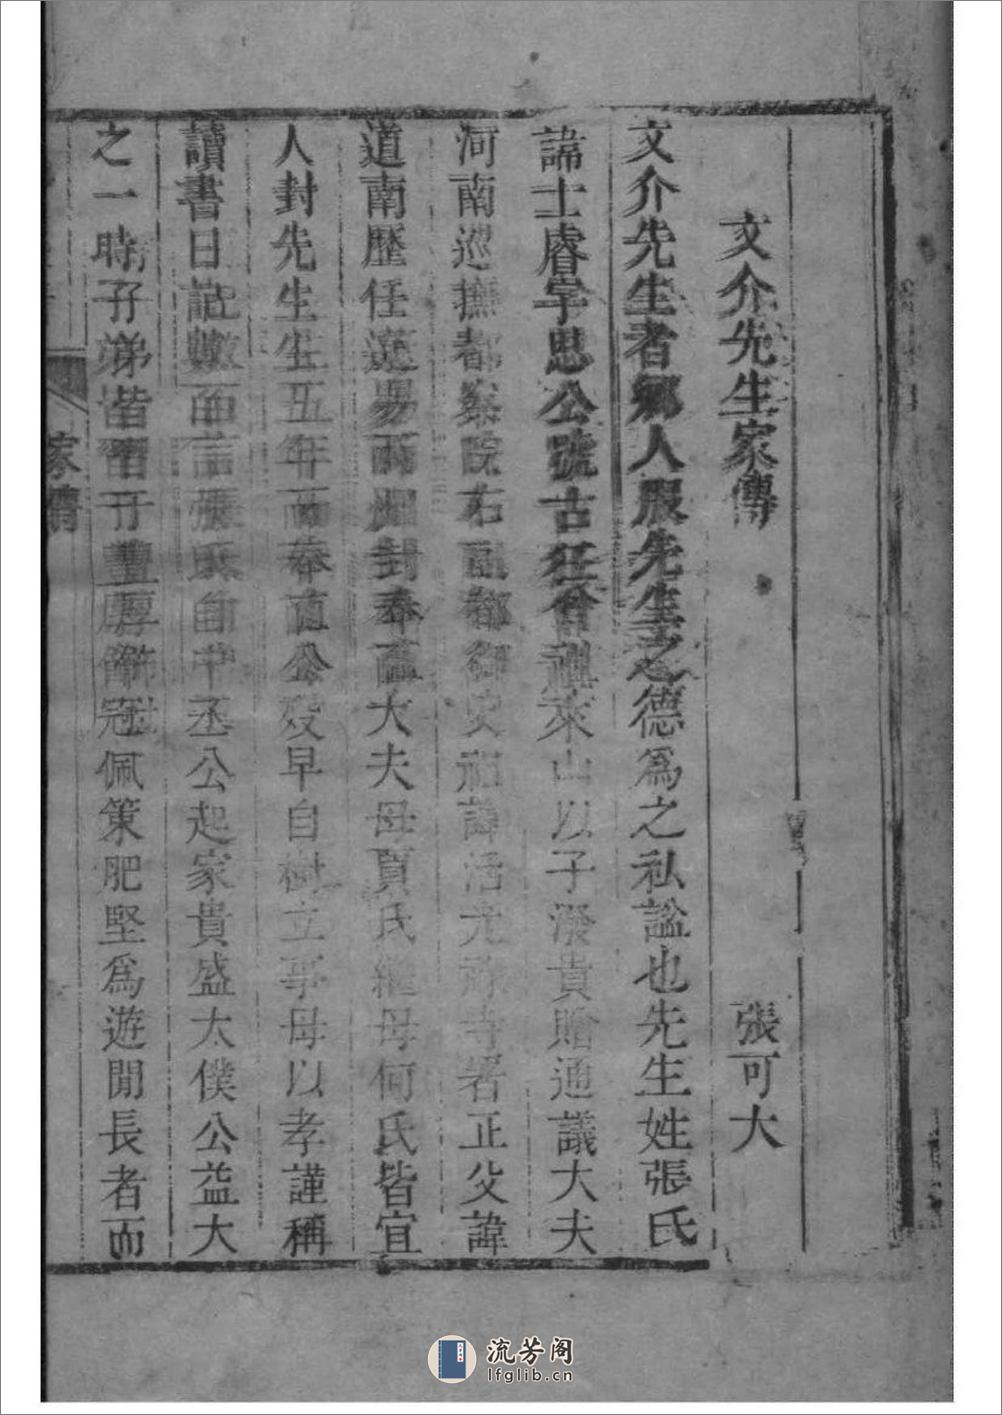 文介先生家傳
張可大
文介先生者鄉人服先生之德爲之私謚也先生姓張氏
諱士睿字思公號古狂曾祖來山以子潑貴贈通議大夫
河南巡撫都察院右副都御史祖諱活光祿寺署正父諱
道南歷任遼易兩州封奉直大夫母賈氏繼母何氏皆宜
人封先生生五年而奉直公歿早自樹立事母以孝謹稱
讀書日記數百言張氏自中丞公起家貴盛太僕公益大
之一時子弟皆習于豐厚飾冠佩策肥堅爲遊閒長者而
家傳
流芳阁
lfglib.cn